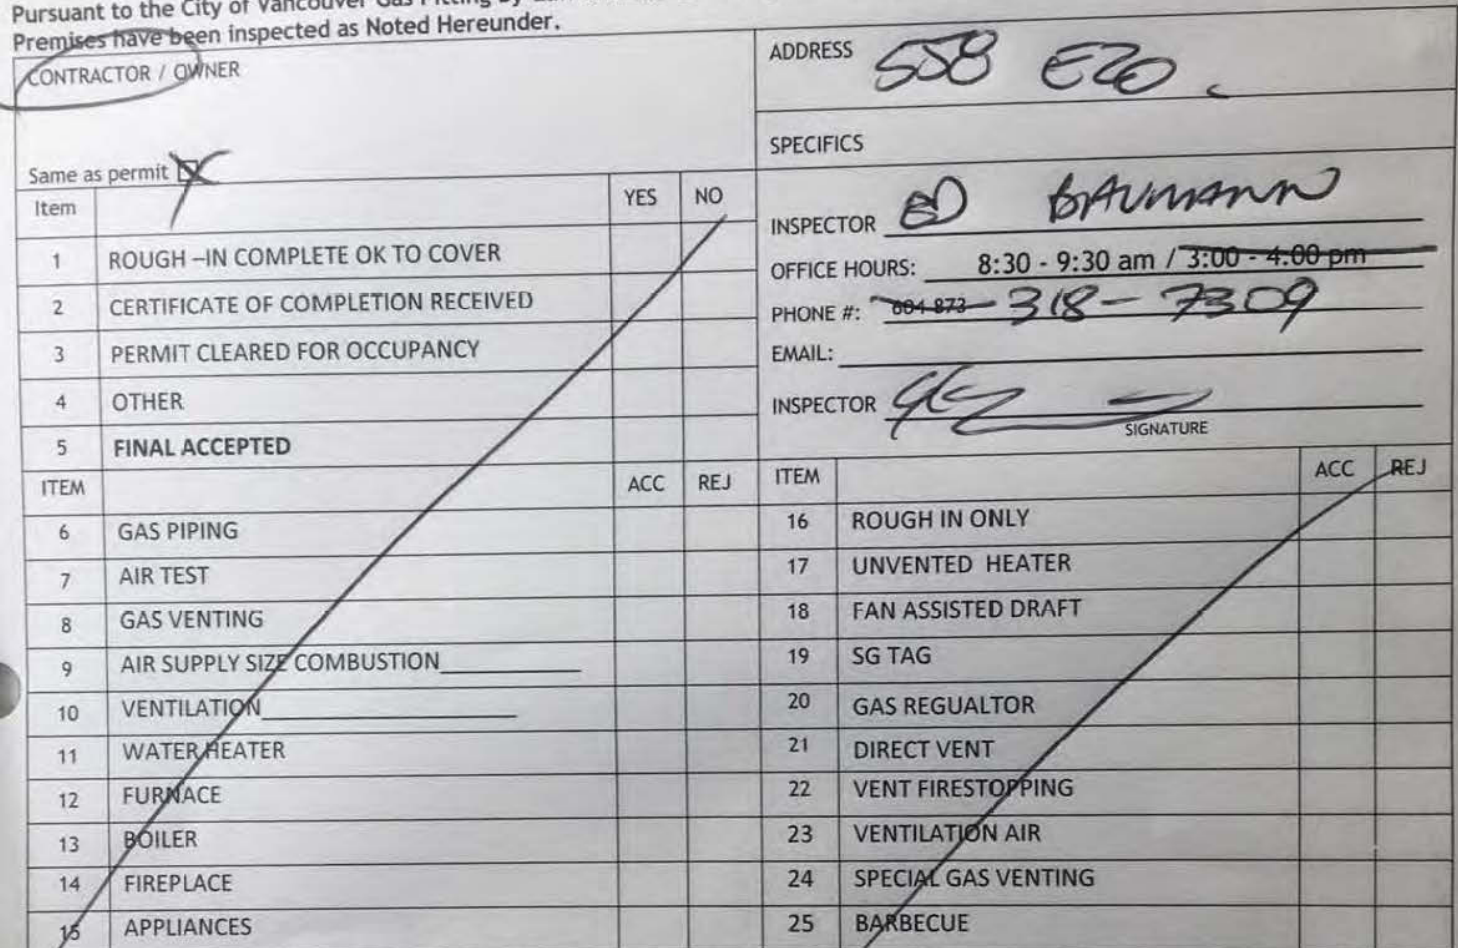 Pursuant to the City of Vancouver Gas Fitting By-
Premises have been inspected as Noted Hereunder.
CONTRACTOR / OWNER
Same as permit
ADDRESS 558 E20.
SPECIFICS
INSPECTOR ED BAUMANN
OFFICE HOURS: 8:30 - 9:30 am / 3:00 - 4:00 pm
PHONE #: 604-873- 318-7309
EMAIL:
INSPECTOR
SIGNATURE
Item YES NO
1 ROUGH –IN COMPLETE OK TO COVER
2 CERTIFICATE OF COMPLETION RECEIVED
3 PERMIT CLEARED FOR OCCUPANCY
4 OTHER
5 FINAL ACCEPTED
ITEM ACC REJ
6 GAS PIPING
7 AIR TEST
8 GAS VENTING
9 AIR SUPPLY SIZE COMBUSTION
10 VENTILATION
11 WATER HEATER
12 FURNACE
13 BOILER
14 FIREPLACE
15 APPLIANCES
ITEM ACC REJ
16 ROUGH IN ONLY
17 UNVENTED HEATER
18 FAN ASSISTED DRAFT
19 SG TAG
20 GAS REGUALTOR
21 DIRECT VENT
22 VENT FIRESTOPPING
23 VENTILATION AIR
24 SPECIAL GAS VENTING
25 BARBECUE